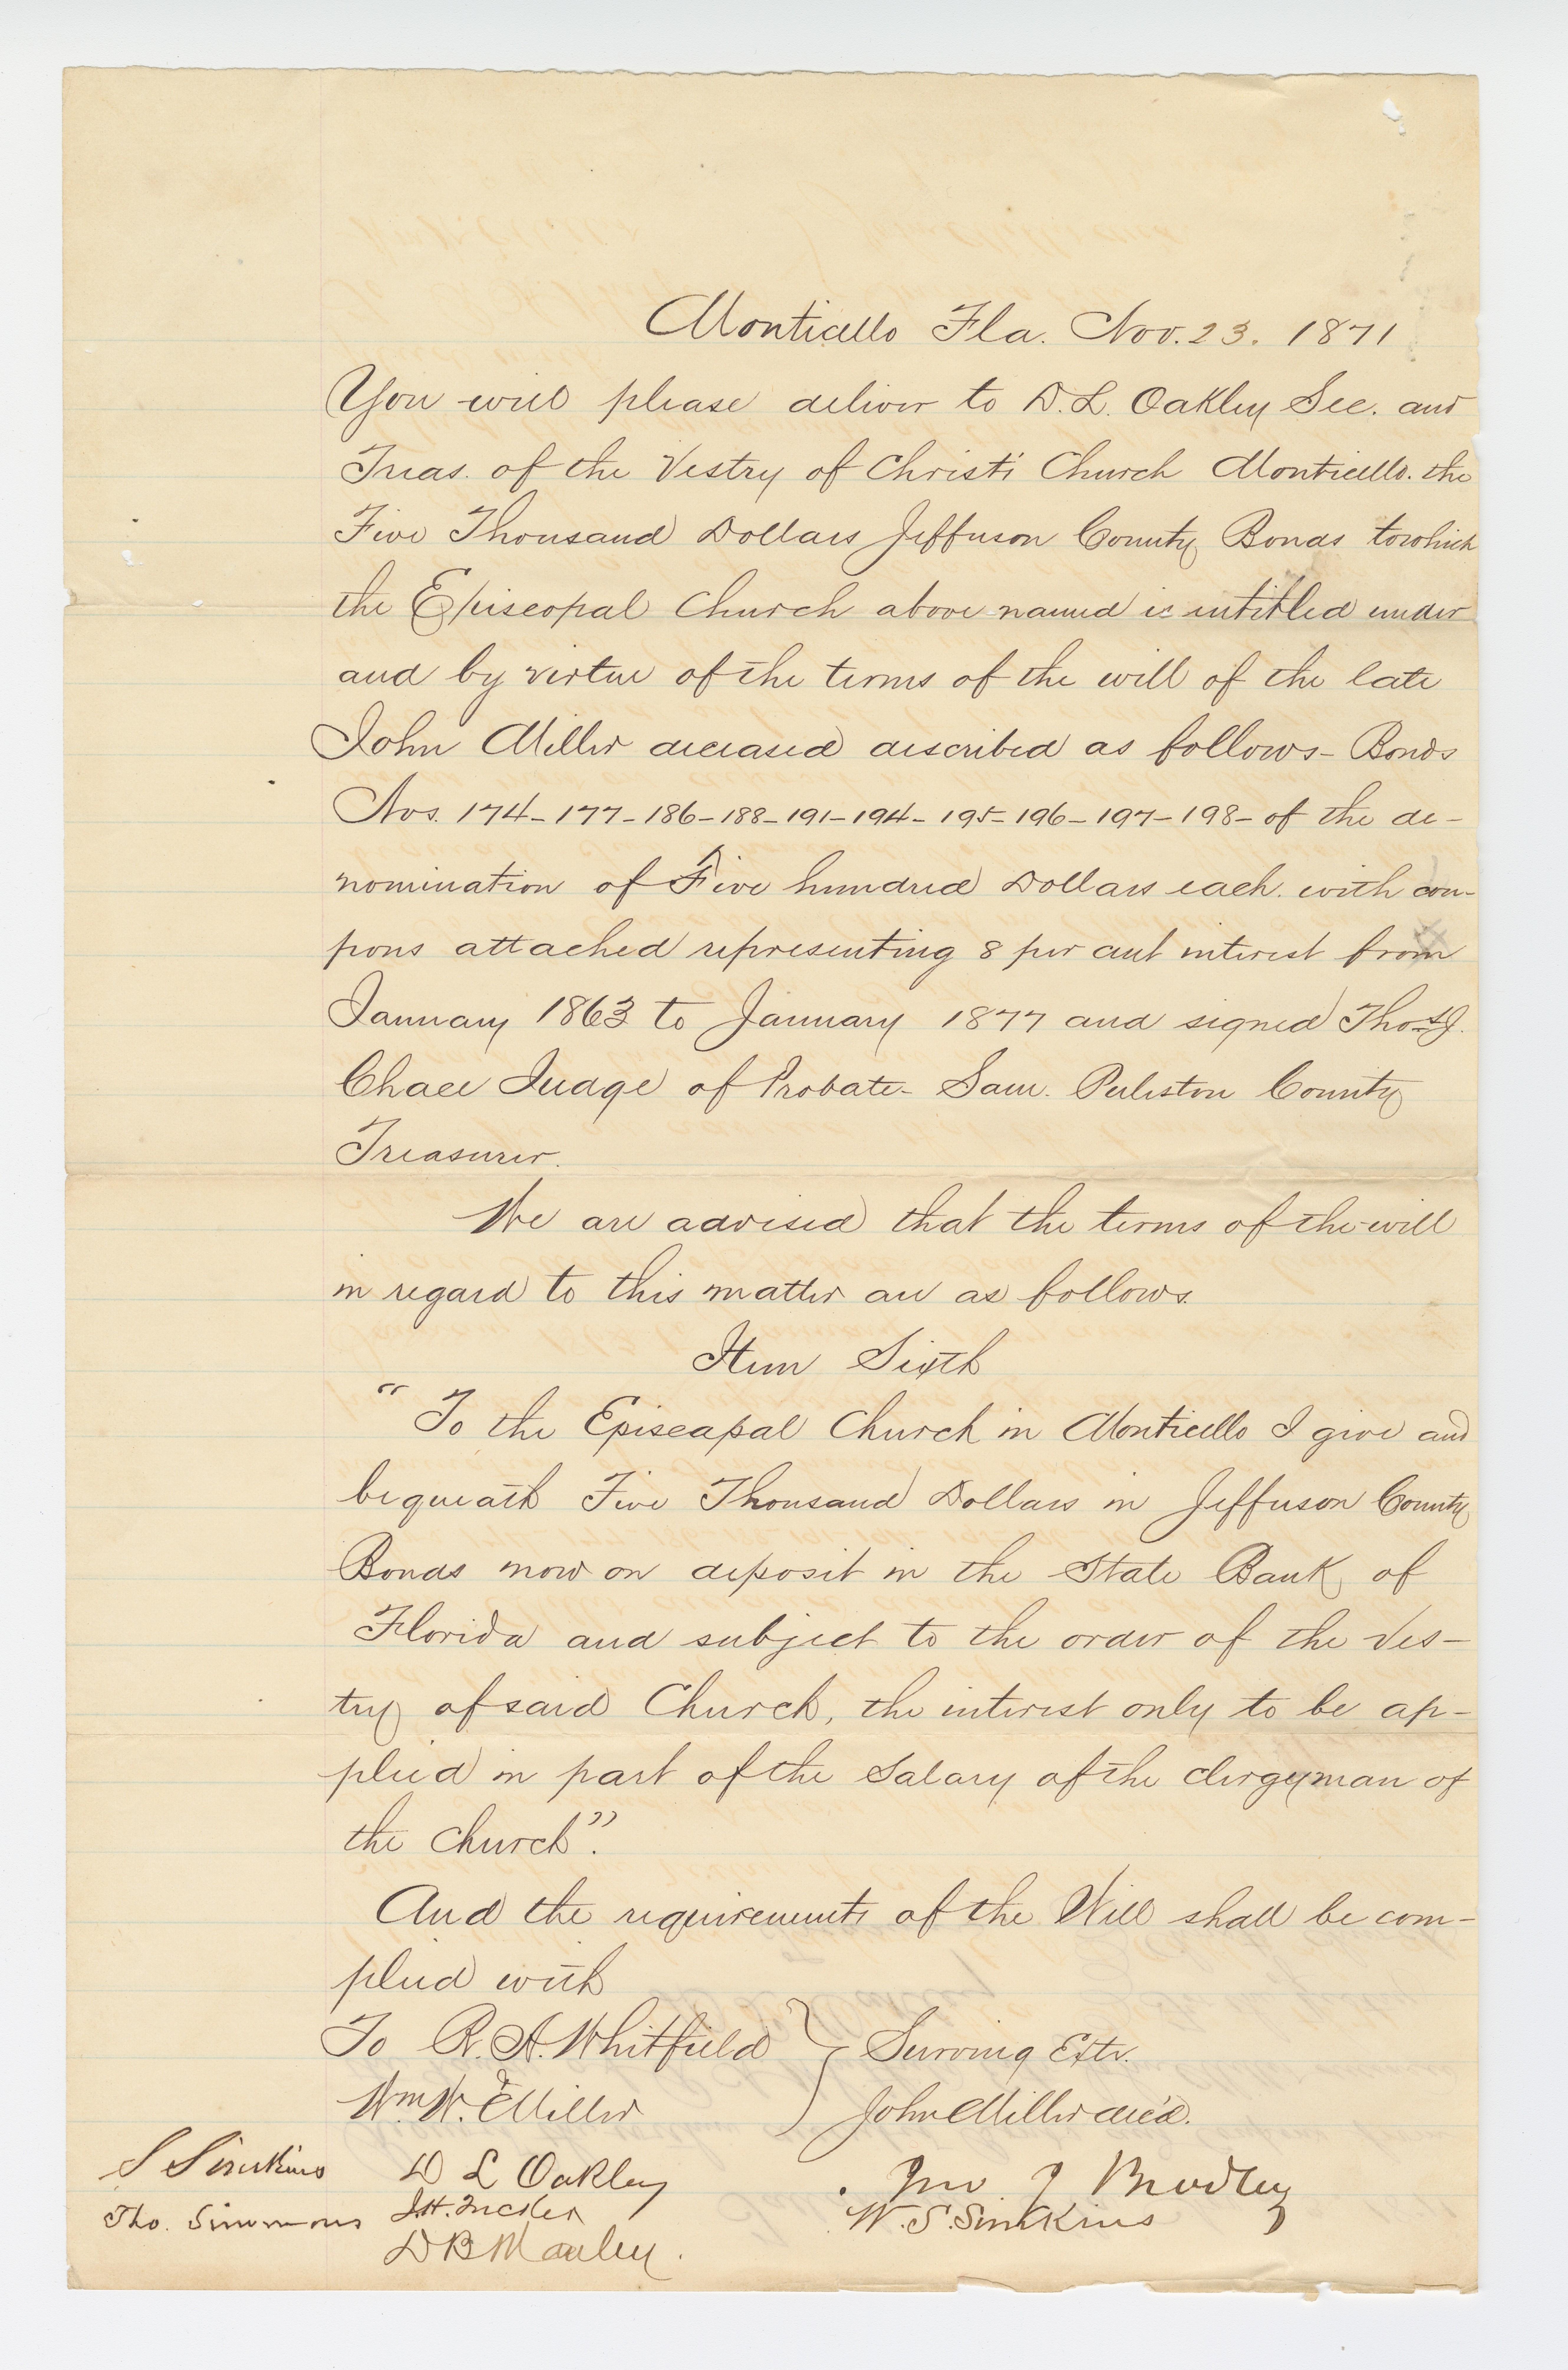 Monticello Fla. Nov. 23. 1871
You will please deliver to D. L. Oakley Sec. and
Treas. of the Vestry of Christ's Church Monticello. the
Five Thousand Dollars Jefferson County Bonds to which
the Episcopal Church above named is intitled under
and by virtue of the terms of the will of the late
John Miller deceased described as follows - Bonds
Nos. 174 - 177 - 186 - 188 - 191 - 194 - 195 - 196 - 197 - 198 - of the de-
nomination of Five hundred Dollars each. with cou-
pons attached representing 8 per cent interest from
January 1863 to January 1877 and signed Thos. J.
Chace Judge of Probate - Sam. Puleston County
Treasurer.
We are advised that the terms of the will
in regard to this matter are as follows.
Item Sixth
" To the Episcopal Church in Monticello I give and
bequeath Five Thousand Dollars in Jefferson County
Bonds now on deposit in the State Bank of
Florida and subject to the order of the Ves-
try of said Church, the interest only to be ap-
plied in part of the Salary of the clergyman of
the church".
And the requirements of the Will shall be com-
plied with
To R. A. Whitfield } Surving Extr.
&
Wm. W. Miller John Miller dec'd.
S Simkins D L Oakley Jno J
Tho. Simmons J. H. Tucker W. S. Simkins
D B